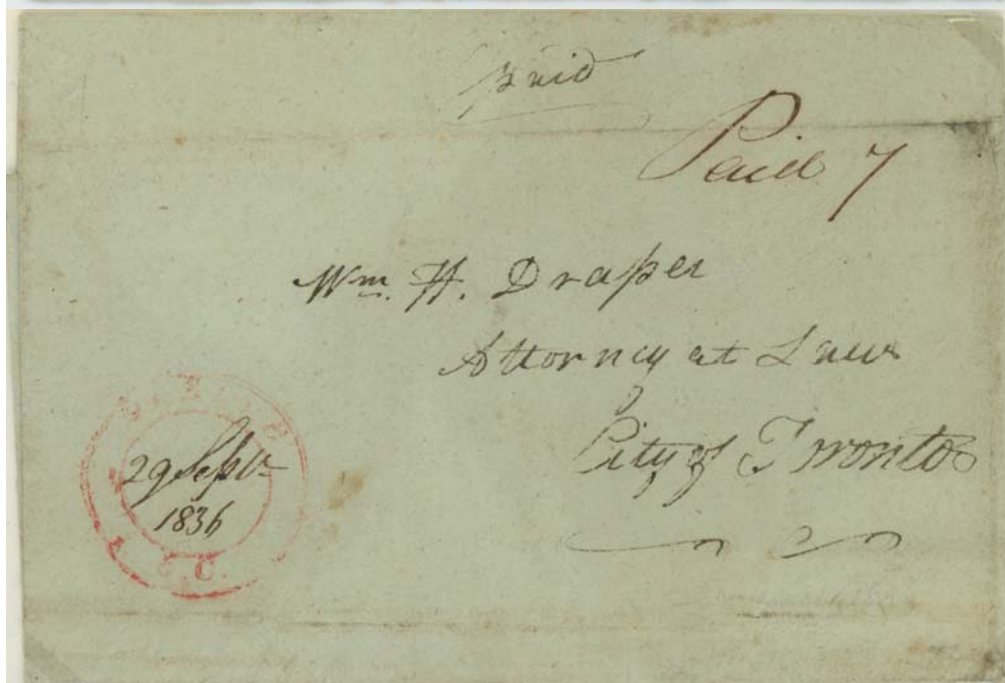 paid
Paid 7
Wm. H. Draper
Attorney at Law
City of Toronto
29 Septr
1836
U.C.